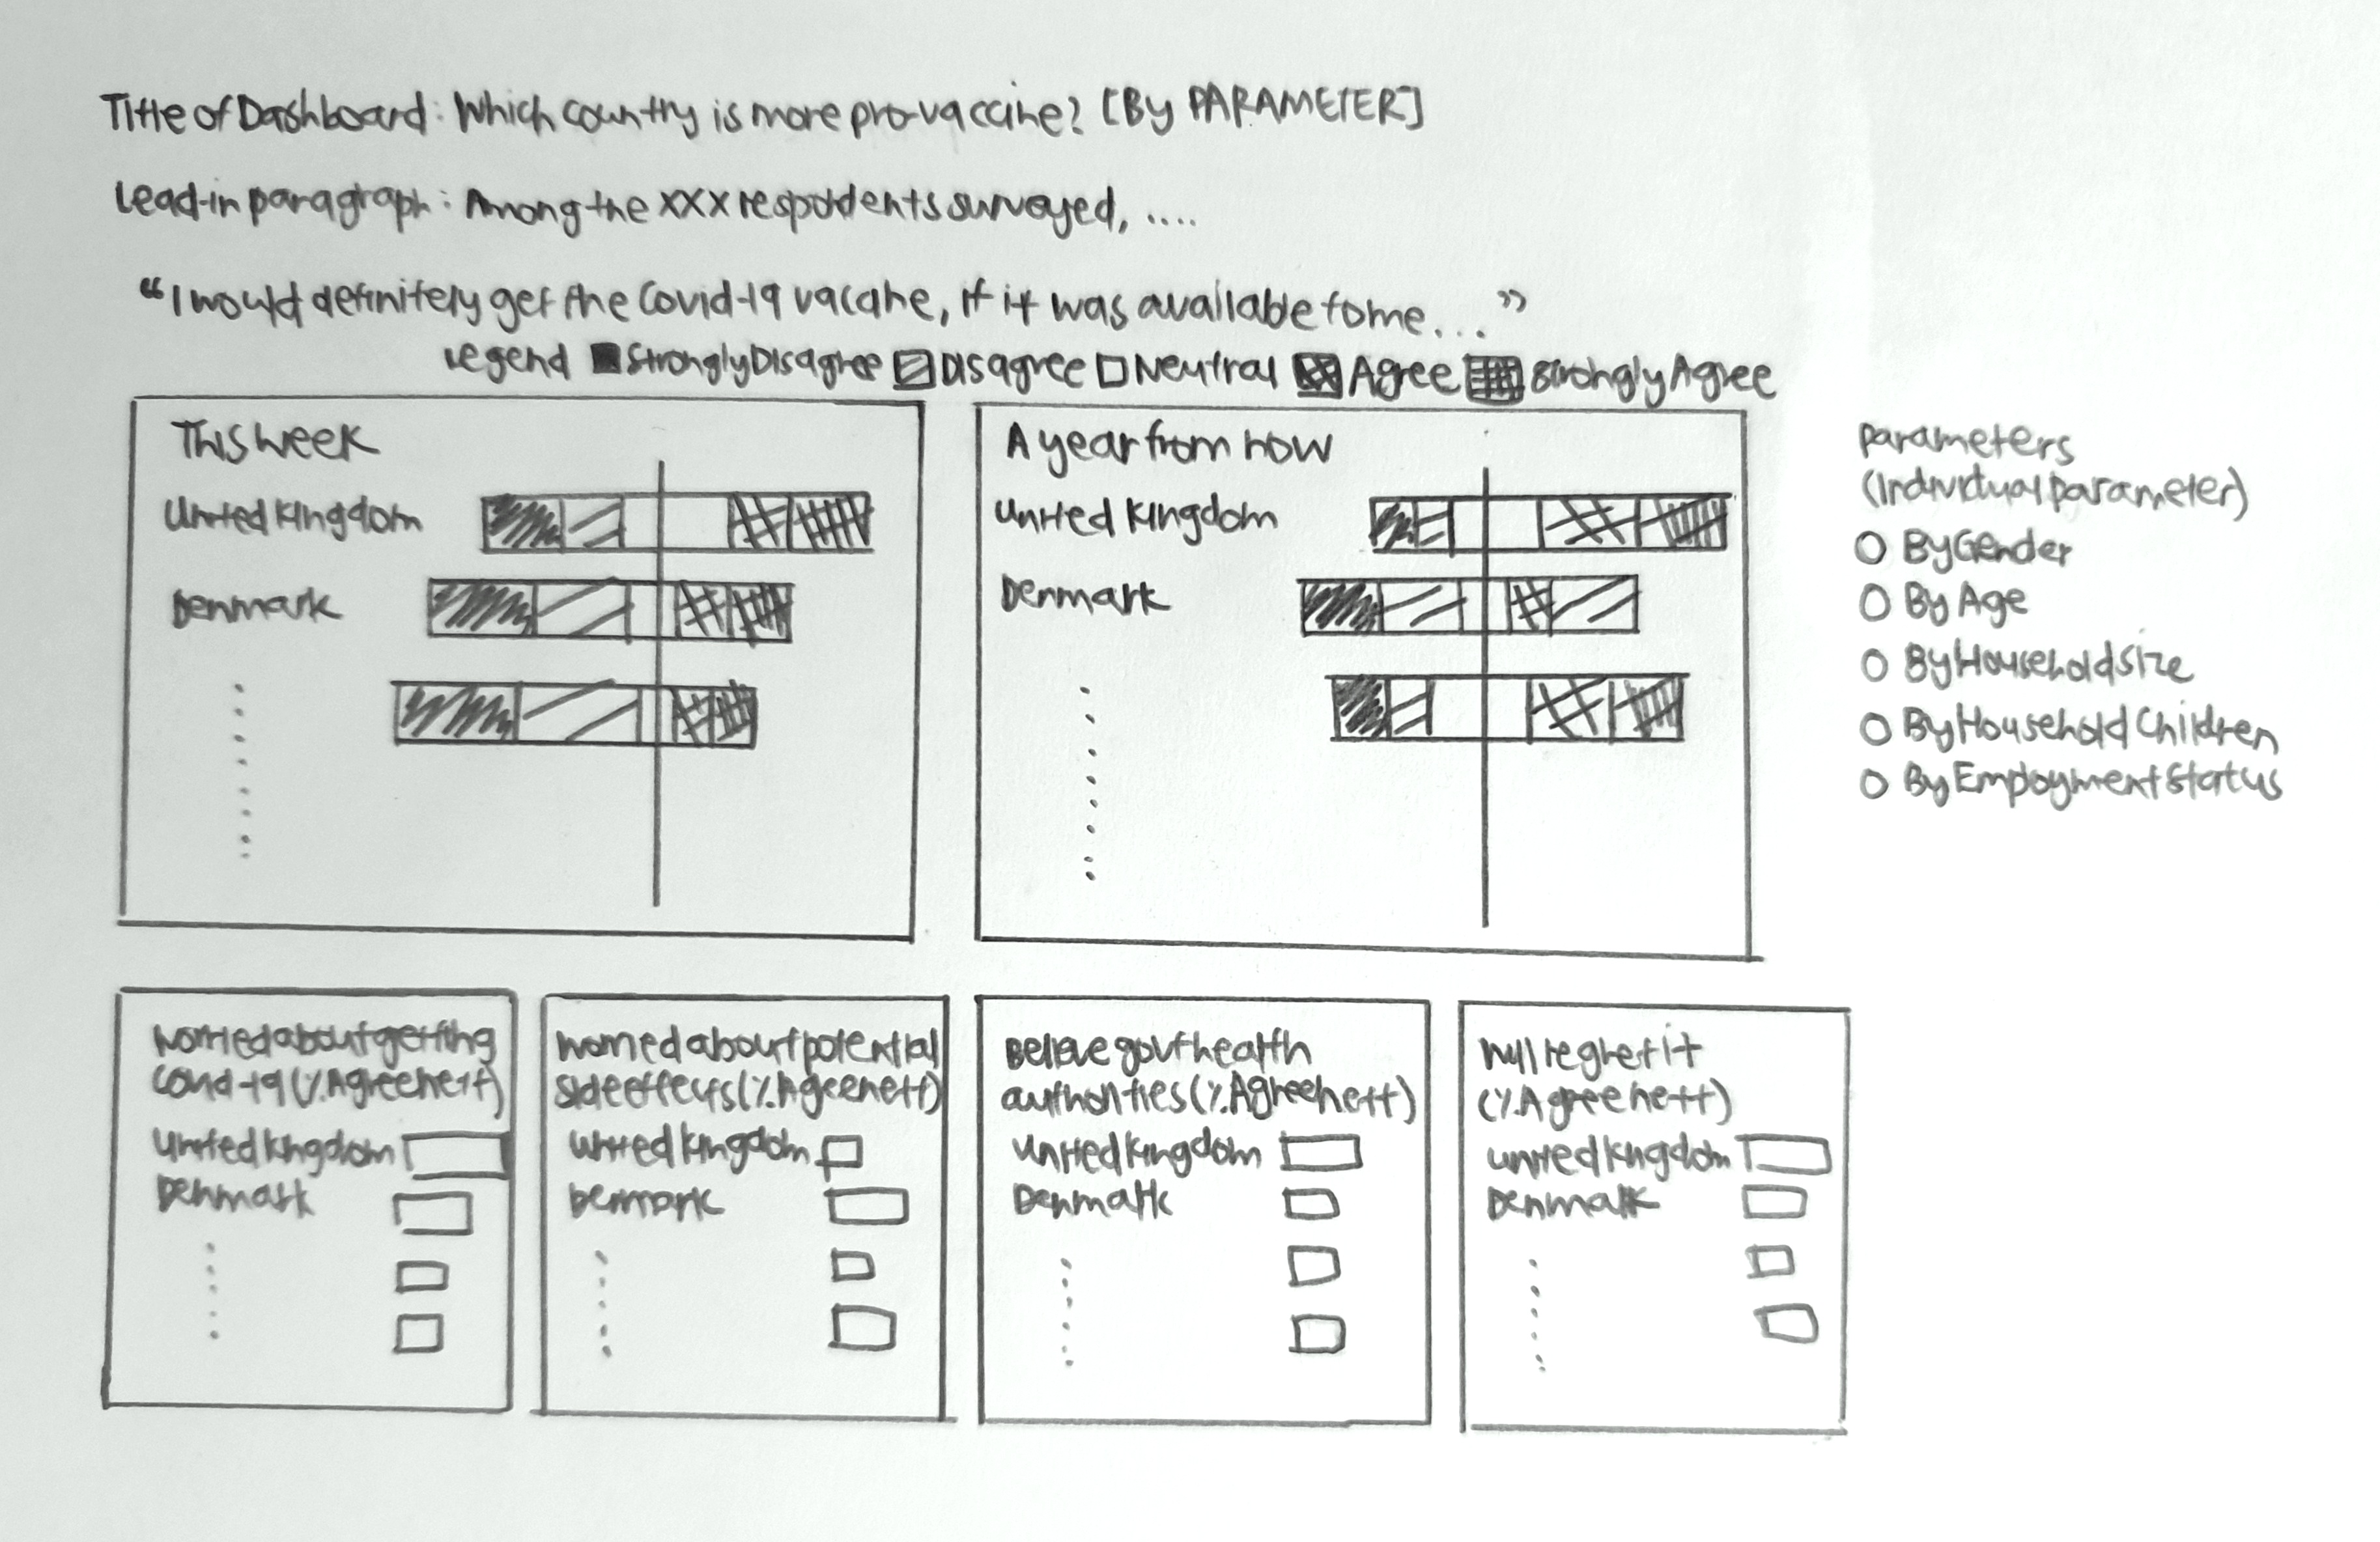 Title of Dashboard: Which country is more pro-vaccine? [By PARAMETER]
Lead-in paragraph: Among the XXX respondents surveyed, ....
"I would definitely get the Covid-19 vaccine, if it was available to me..."
Legend Strongly Disagree Disagree Neutral Agree Strongly Agree
This week
United Kingdom
Denmark
A year from now
United Kingdom
Denmark
Parameters
(Individual parameter)
By Gender
By Age
By Household Size
By Household Children
By Employment Status
Worried about getting
Covid-19 (% Agreement)
United Kingdom
Denmark
Worried about potential
side effects (% Agreement)
United Kingdom
Denmark
Believe govt health
authorities (% Agreement)
United Kingdom
Denmark
Will regret it
(% Agreement)
United Kingdom
Denmark